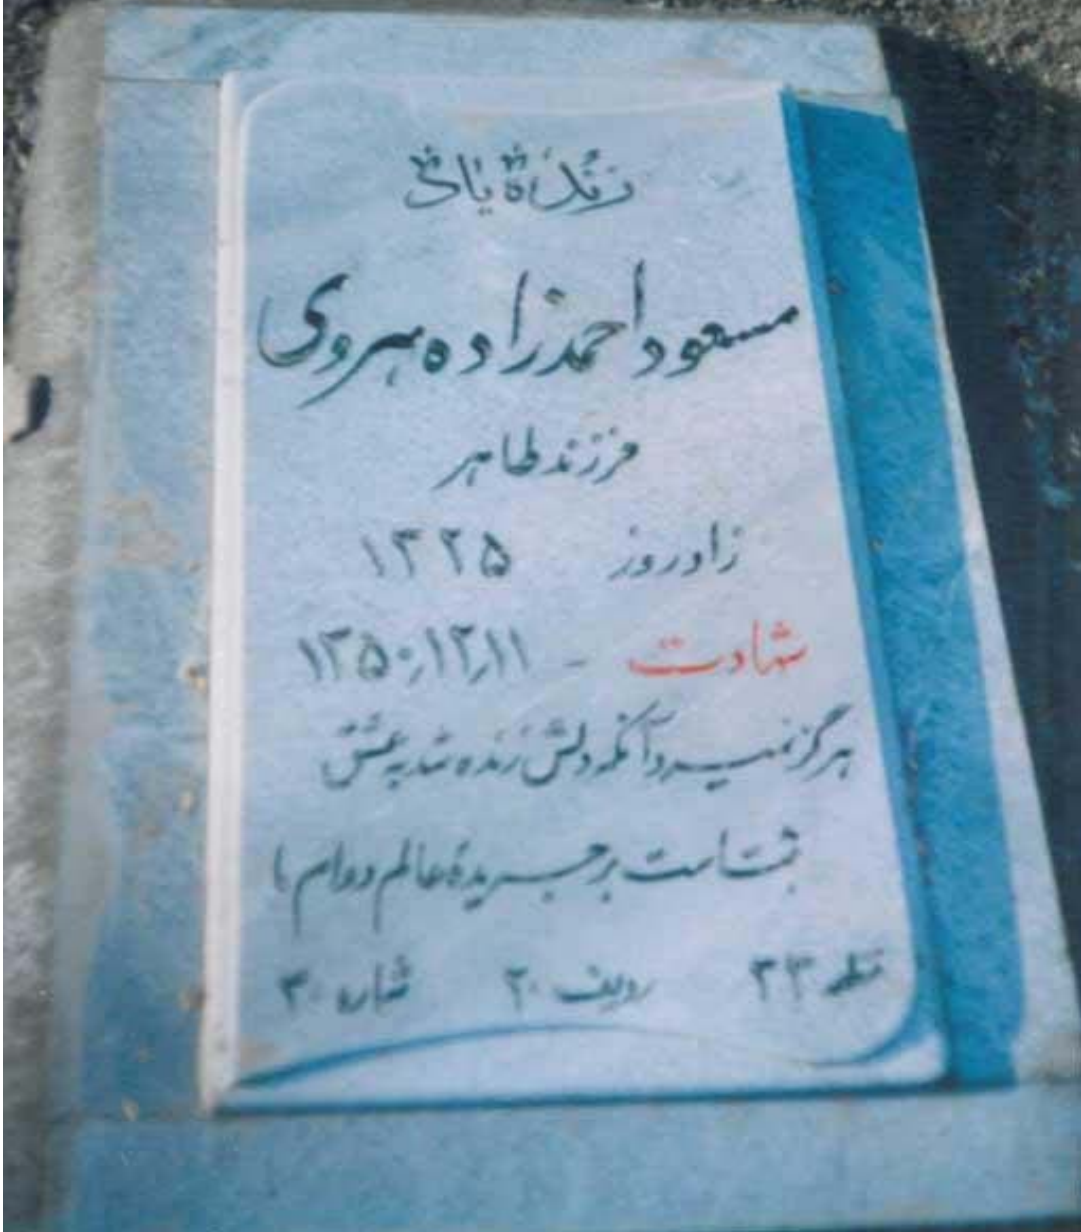 زنده یاد
مسعود احمدزاده هروی
فرزند طاهر
زادروز ۱۳۲۵
شهادت - ۱۳۵۰/۱۲/۱۱
هرگز نمیرد آنکه دلش زنده شد به عشق
ثبت است بر جریدهٔ عالم دوام ما
قطعه ۳۳ ردیف ۲۰ شماره ۳۰